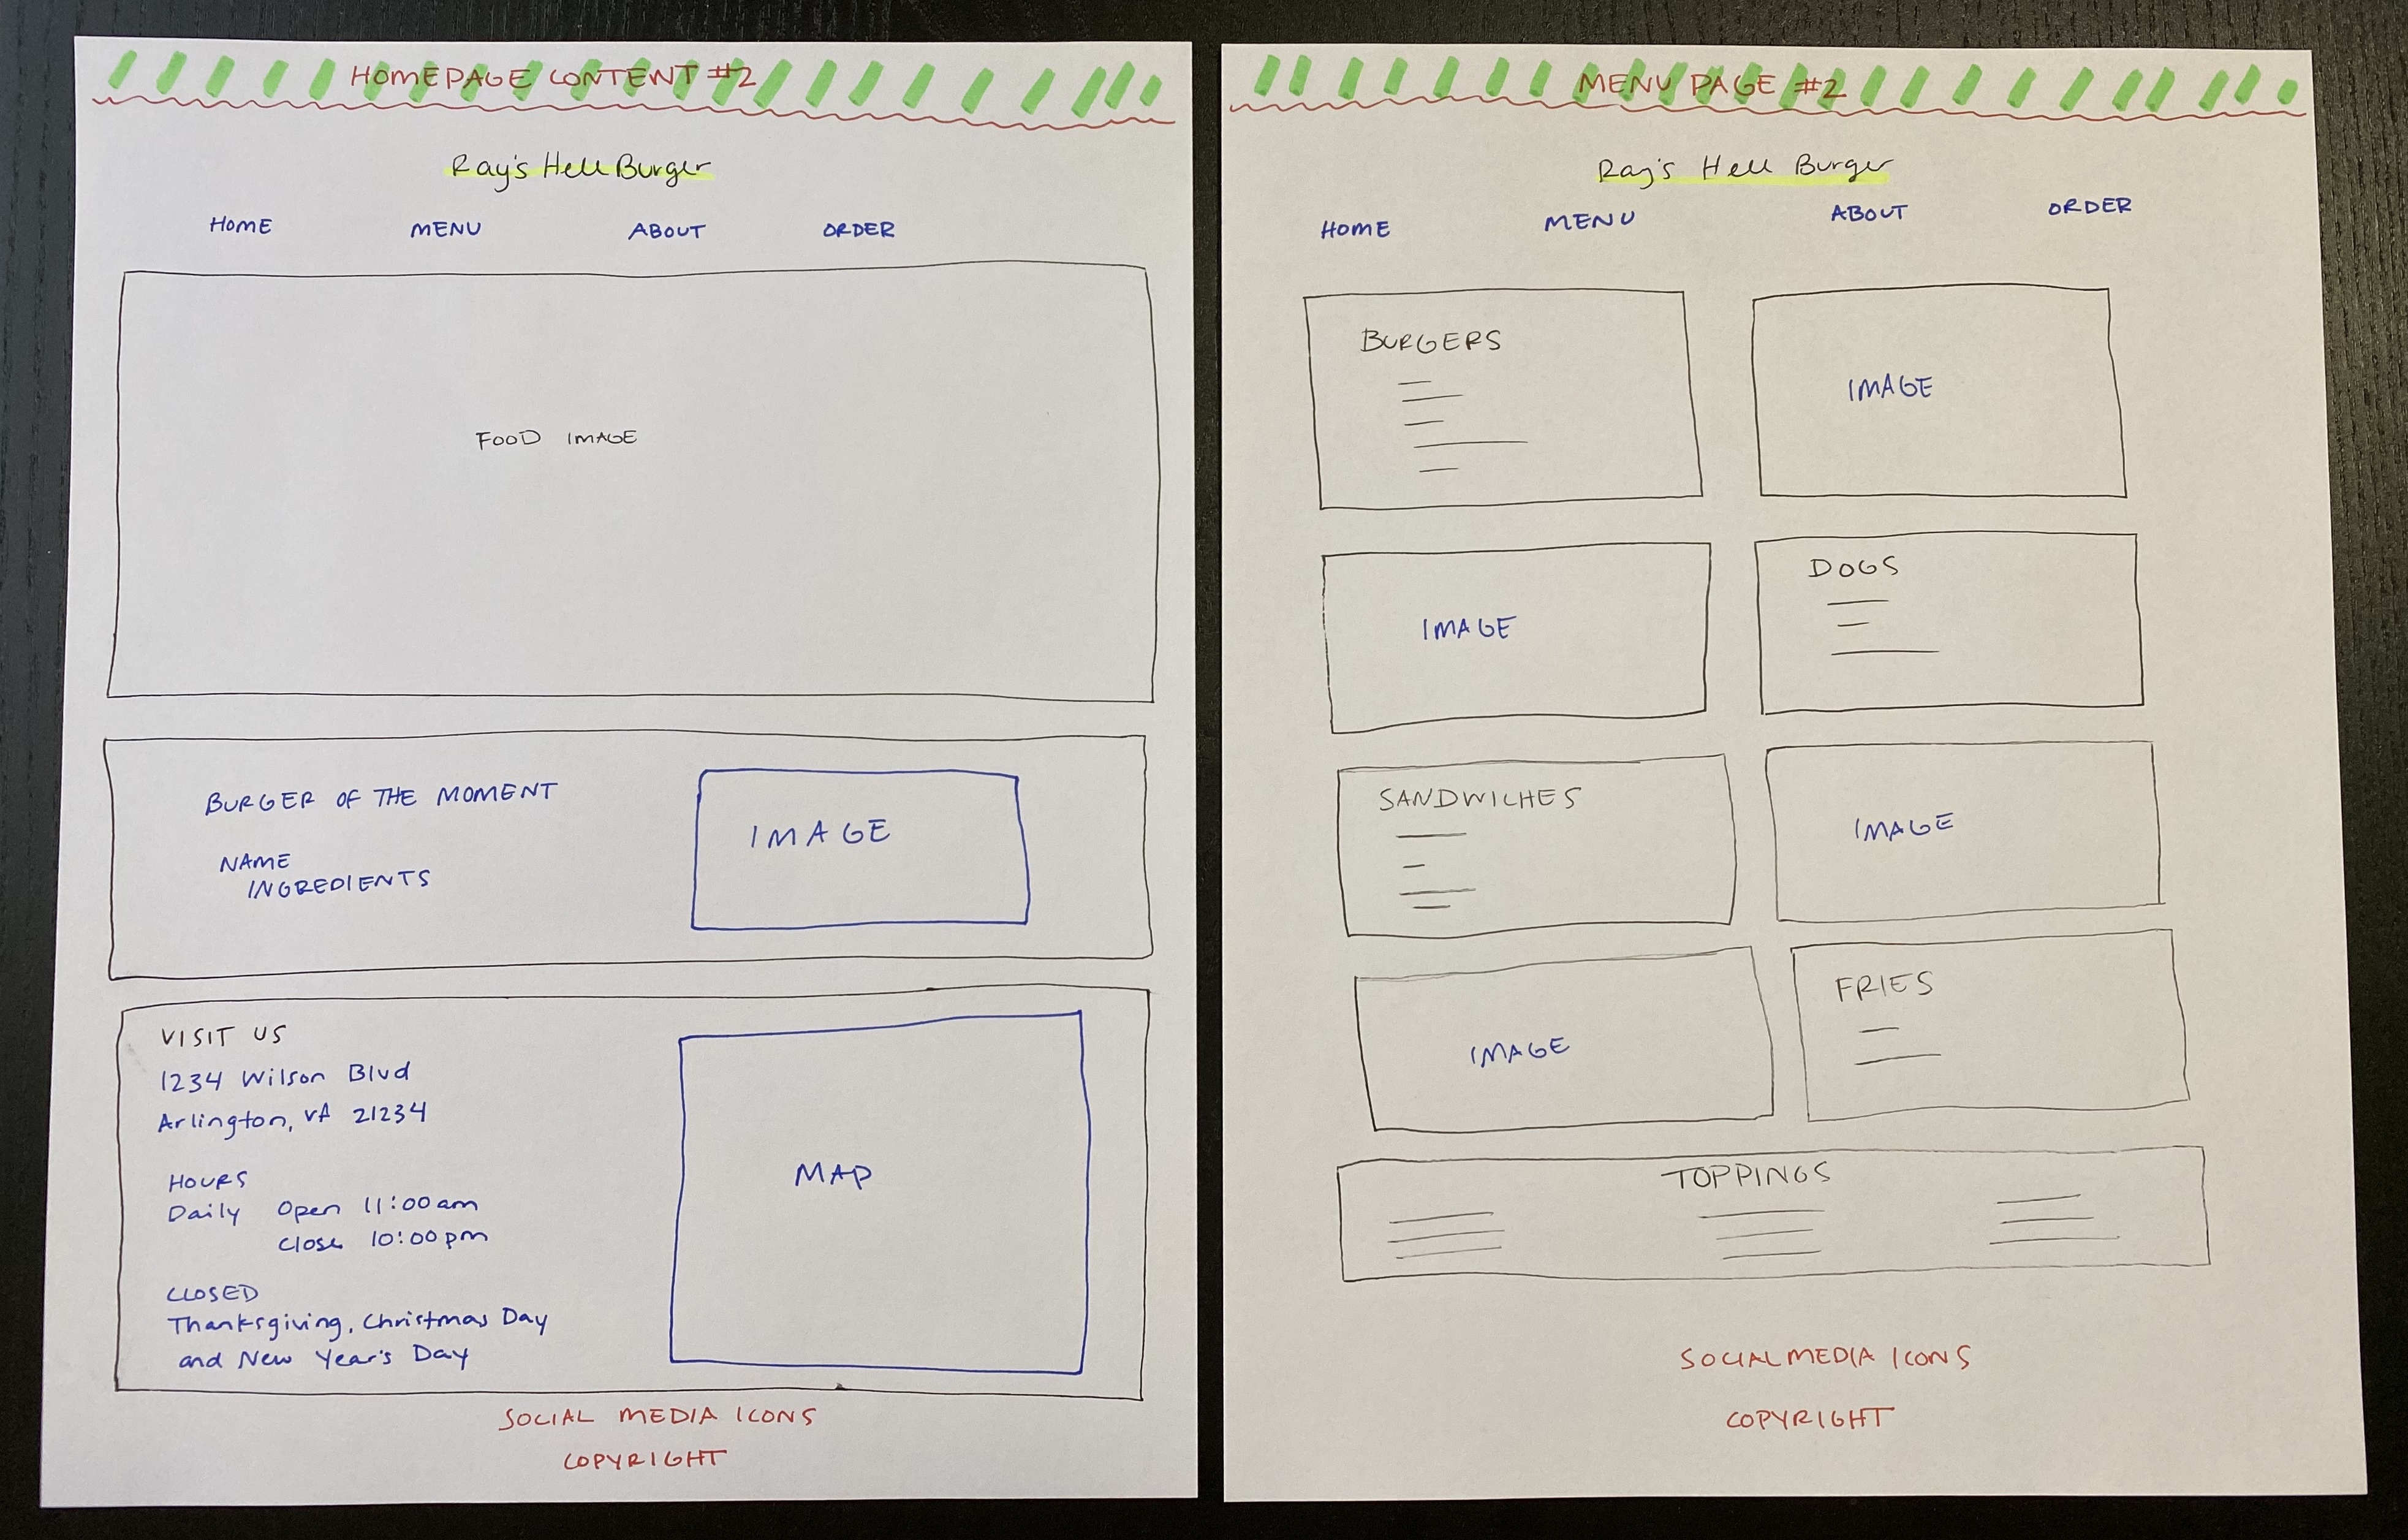 HOMEPAGE CONTENT #2
Ray's Hell Burger
HOME MENU ABOUT ORDER
FOOD IMAGE
BURGER OF THE MOMENT
NAME
INGREDIENTS
IMAGE
VISIT US
1234 Wilson Blvd
Arlington, VA 21234
HOURS
Daily Open 11:00am
Close 10:00pm
CLOSED
Thanksgiving, Christmas Day
and New Year's Day
MAP
SOCIAL MEDIA ICONS
COPYRIGHT
MENU PAGE #2
Ray's Hell Burger
HOME MENU ABOUT ORDER
BURGERS
IMAGE
IMAGE
DOGS
SANDWICHES
IMAGE
IMAGE
FRIES
TOPPINGS
SOCIAL MEDIA ICONS
COPYRIGHT